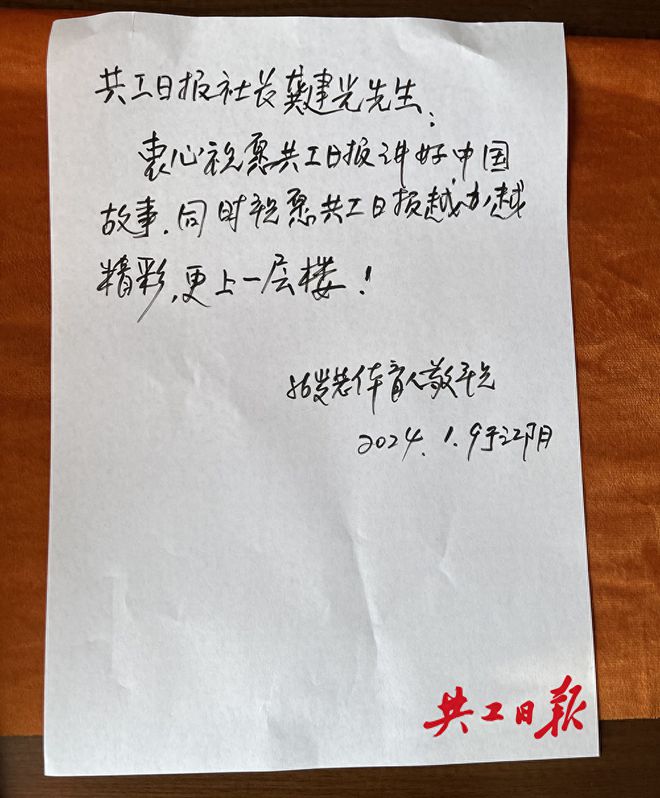 共工日报社长龚建光先生:
衷心祝愿共工日报讲好中国
故事.同时祝愿共工日报越办越
精彩,更上一层楼!
岁老体育人敬祝
2024.1.9于江阴
共工日报